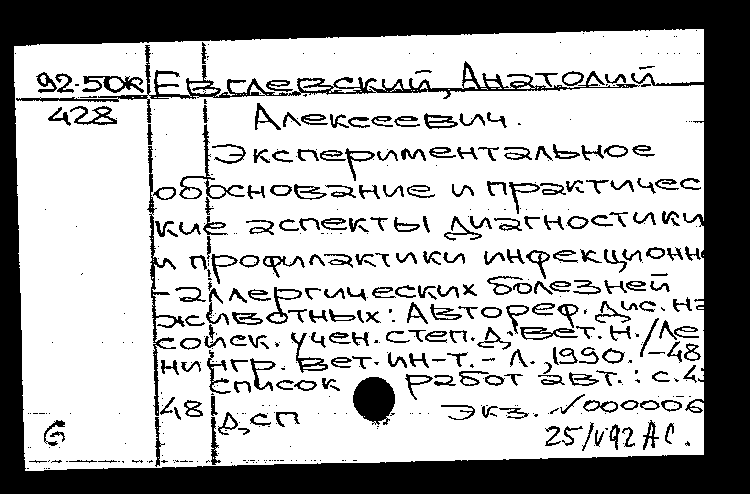 92-50к Евглевский, Анатолий
428 Алексеевич.
Экспериментальное
обоснование и практичес
кие аспекты диагностики
и профилактики инфекционн
-аллергических болезней
животных: Автореф. дис. на
соиск. учен. степ. д. вет. н. / Ле-
нингр. вет. ин-т. - Л., 1990. - 48
список работ авт.: с. 43
48 дсп экз. √000006
6 25/V92 АС.